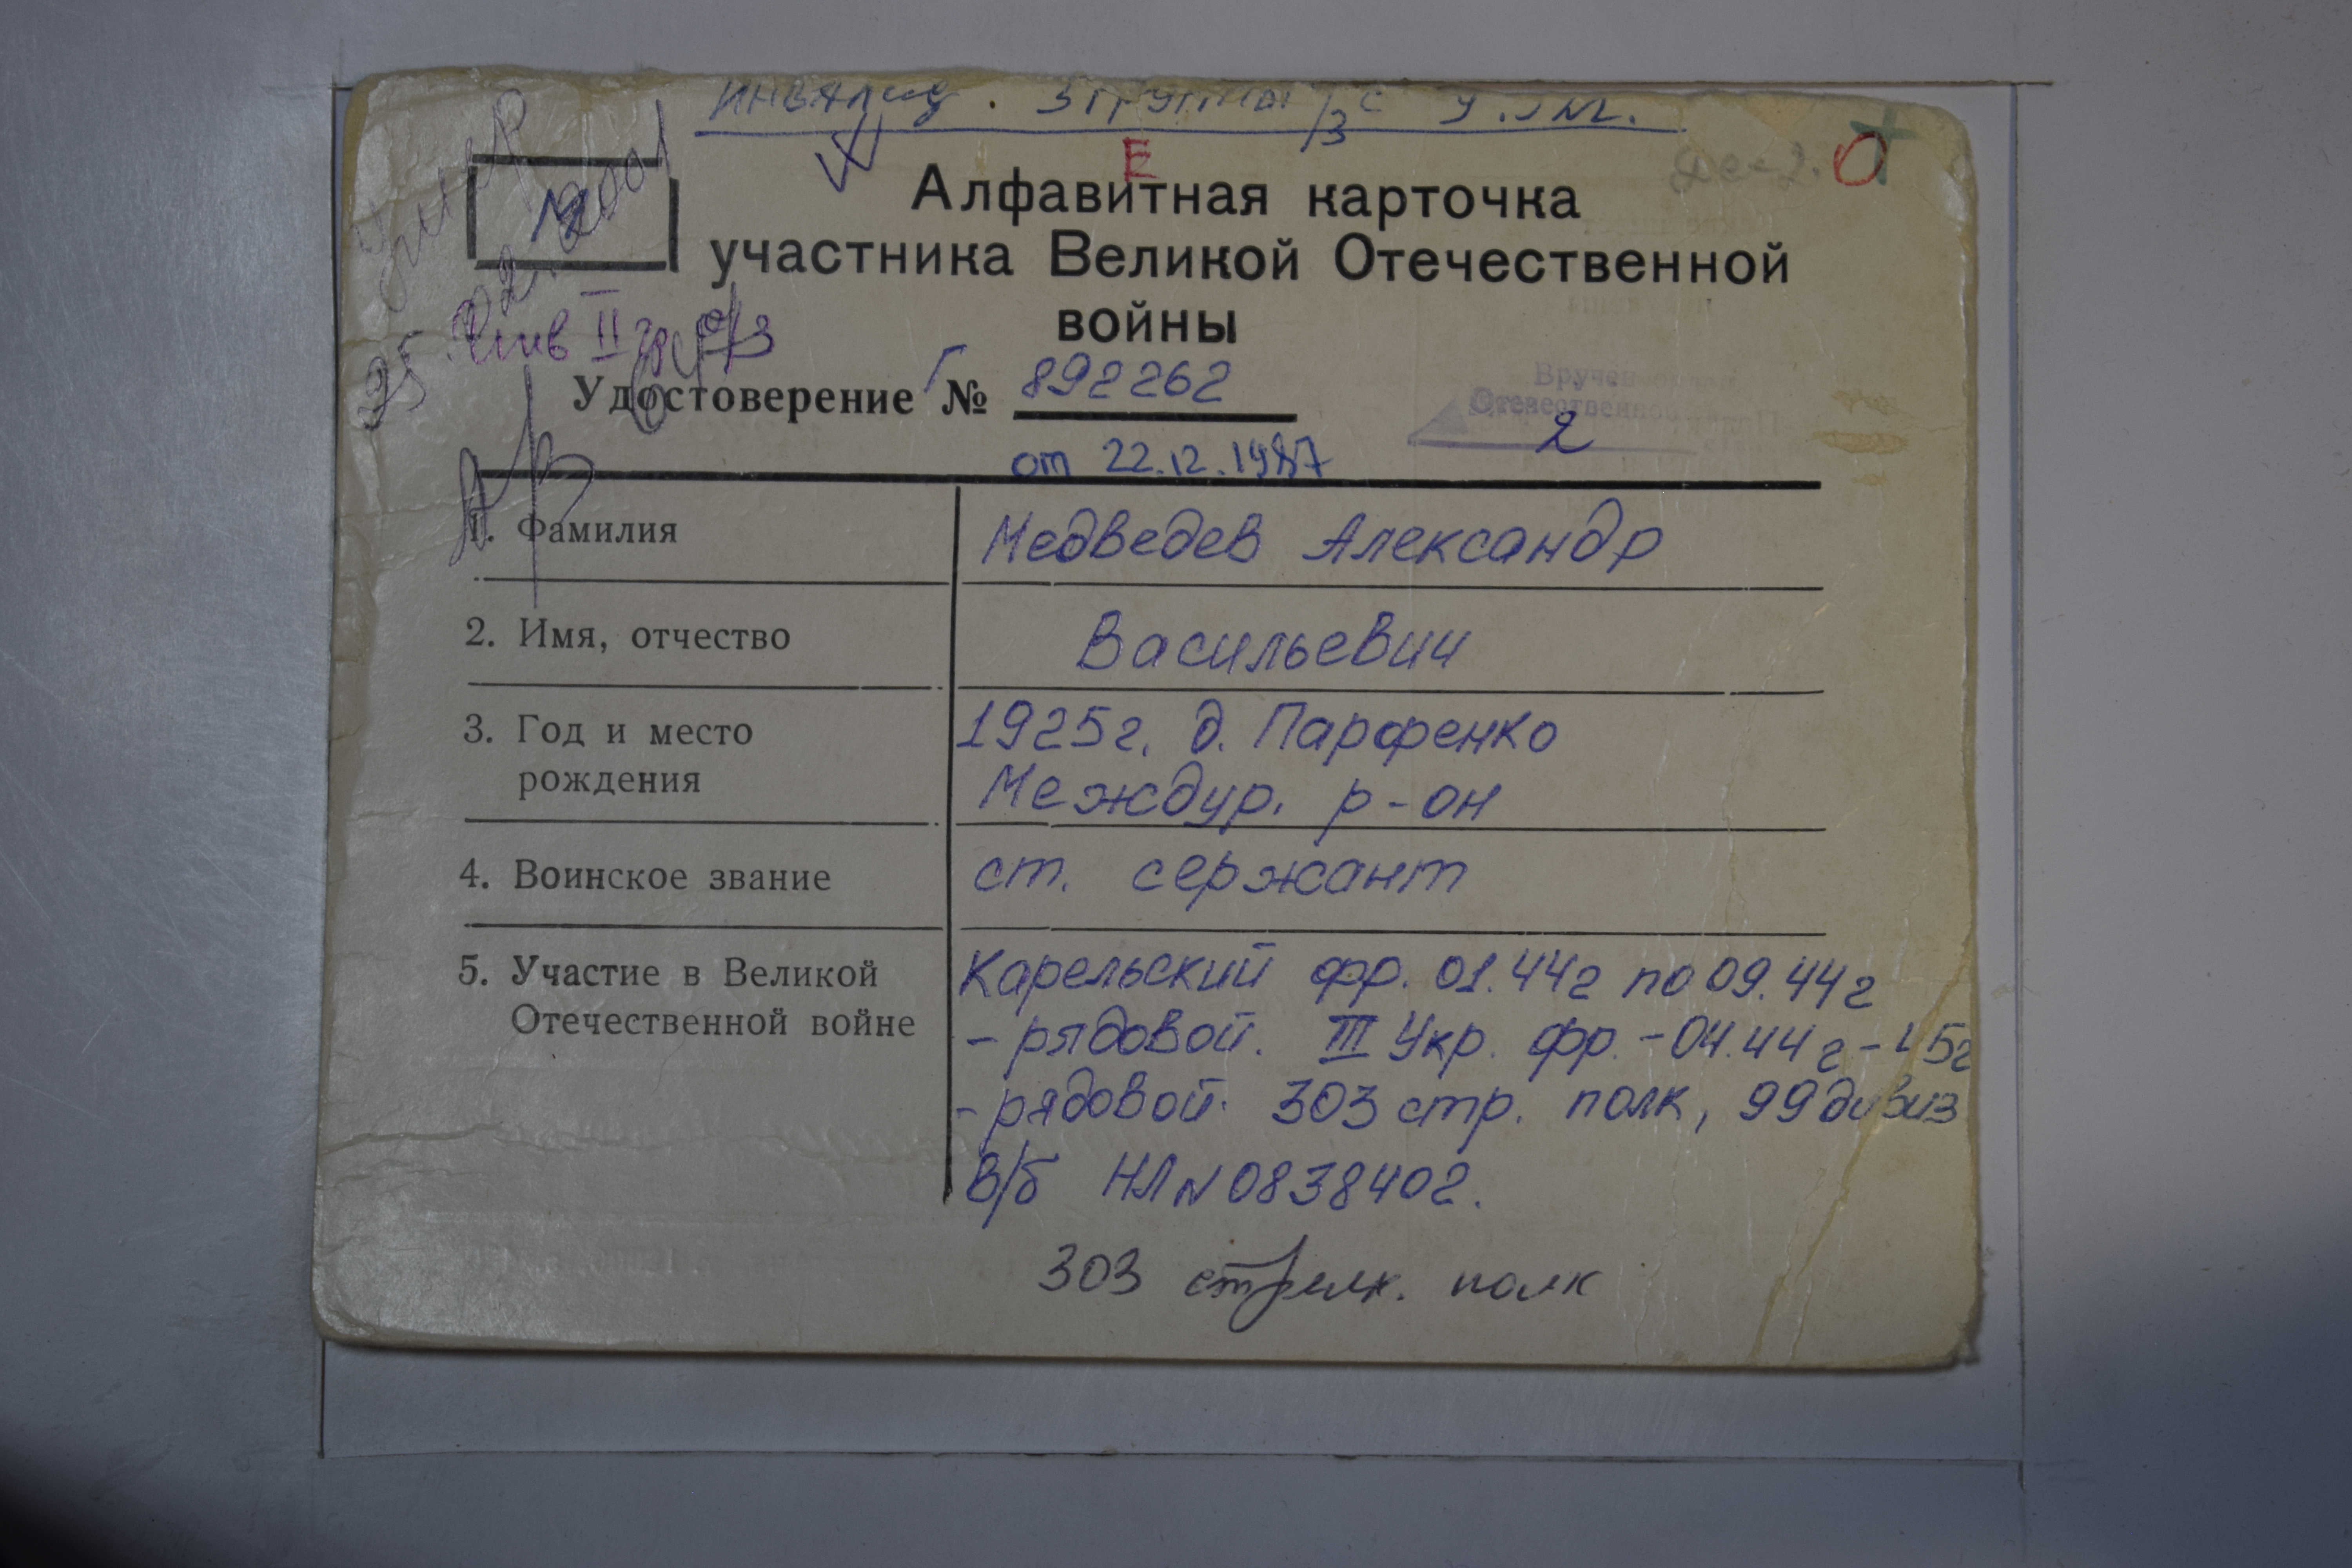 инвалид. 3 группы
Е
Алфавитная карточка
участника Великой Отечественной
войны
Умер
02.2001
25.
инв II гр
Удостоверение Г № 892262
от 22.12.1987
Вручен орден
Отечественной
2
1. Фамилия Медведев Александр
2. Имя, отчество Васильевич
3. Год и место 1925г. д. Парфенко
рождения Междур. р-он
4. Воинское звание ст. сержант
5. Участие в Великой Карельский фр. 01.44г по 09.44г
Отечественной войне - рядовой. III Укр. фр. - 04.44г - 45г
- рядовой. 303 стр. полк, 99 дивиз
В/б НЛ N 0838402.
303 стрелк. полк